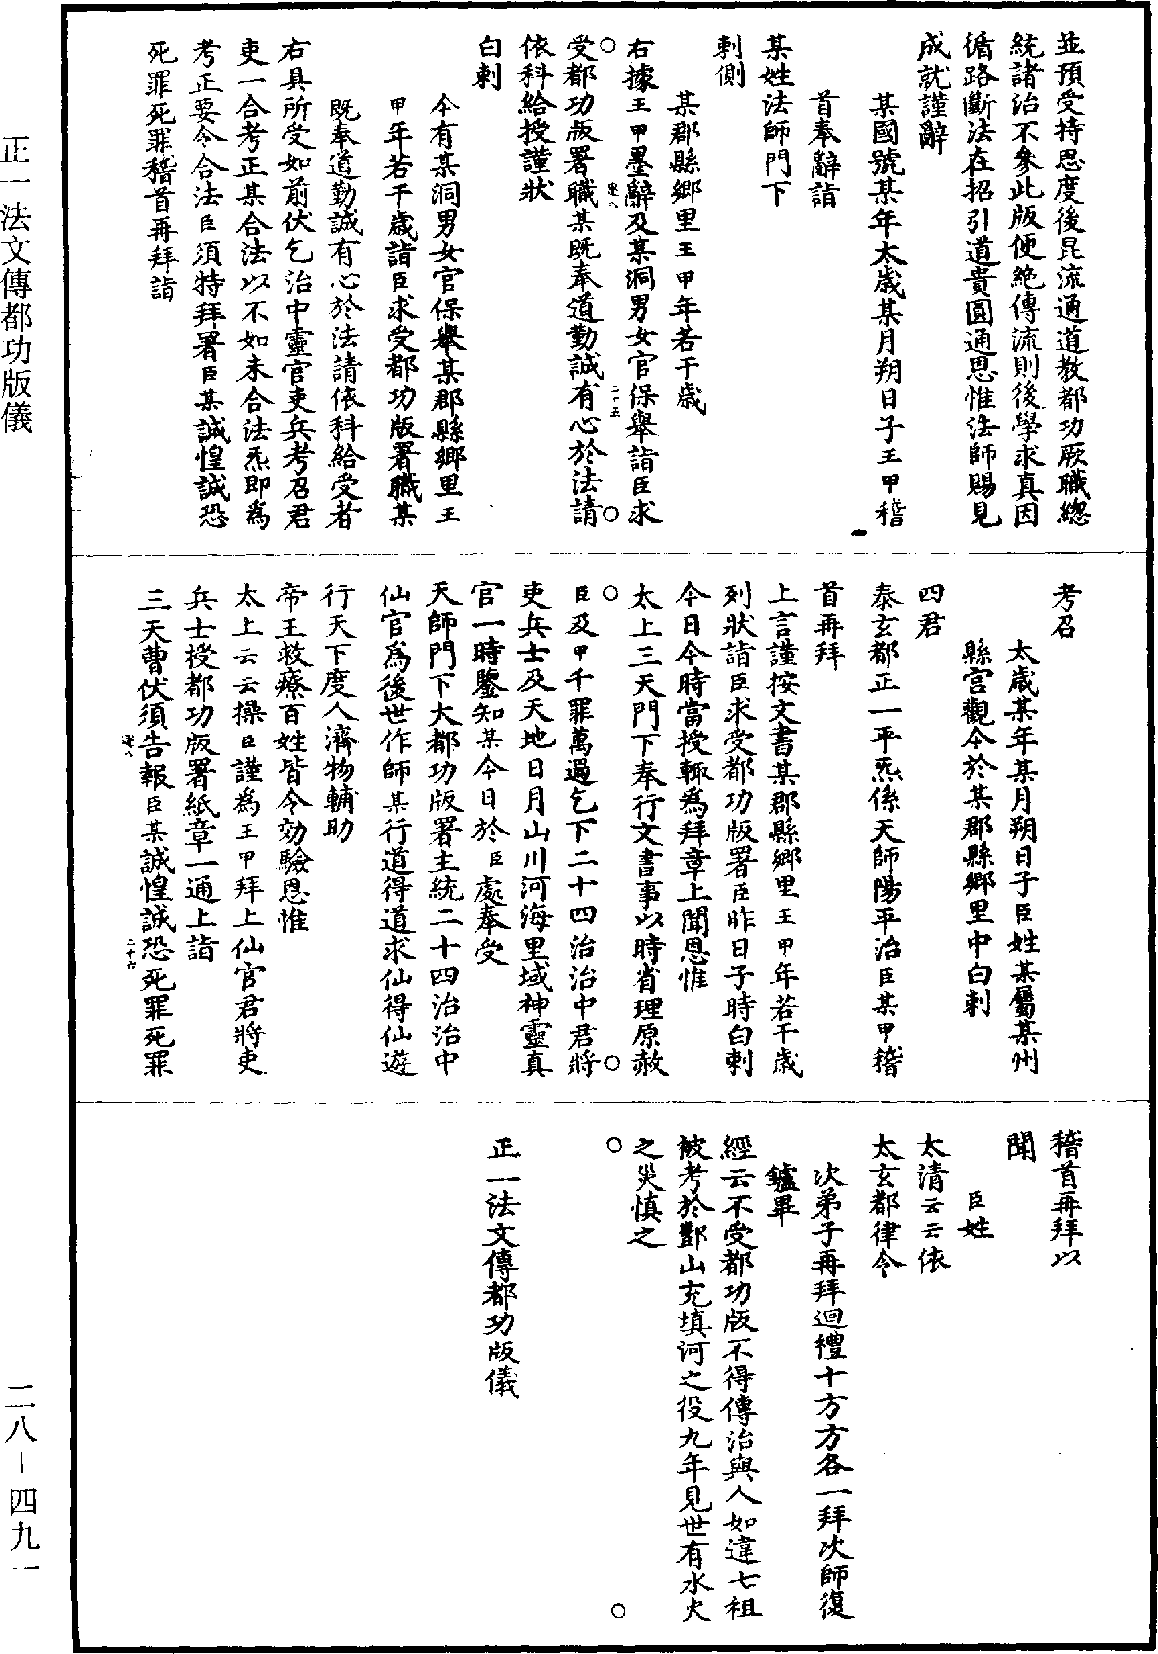 並預受持恩度後昆流通道教都功厥職緫
統諸治不參此版便絶傳流則後學求真因
循路斷法在招引道貴圓通恩惟法師賜見
成就謹辭
某國號某年太歲某月朔日子王甲稽
首奉辭詣
某姓法師門下
刺側
某郡縣鄉里王甲年若干歲
右據王甲墨辭及某洞男女官保舉詣臣求
二十五
受都功版署職某既奉道勤誠有心於法請
依科給授謹狀
白刺
今有某洞男女官保舉某郡縣鄉里王
甲年若干歲詣臣求受都功版署職某
既奉道勤誠有心於法請依科給受者
右具所受如前伏乞治中靈官吏兵考召君
吏一合考正某合法以不如未合法炁即為
考正要令合法臣須特拜署臣某誠惶誠恐
死罪死罪稽首再拜詣
考召
太歲某年某月朔日子臣姓某屬某州
縣宮觀今於某郡縣鄉里中白刺
四君
泰玄都正一平炁係天師陽平治臣某甲稽
首再拜
上言謹按文書某郡縣鄉里王甲年若干歲
列狀詣臣求受都功版署臣昨日子時白刺
今日今時當授輒為拜章上聞恩惟
太上三天門下奉行文書事以時省理原赦
臣及甲千罪萬過乞下二十四治治中君將
吏兵士及天地日月山川河海里域神靈真
官一時鑒知某今日於臣處奉受
天師門下大都功版署主統二十四治治中
仙官為後世作師某行道得道求仙得仙遊
行天下度人濟物輔助
帝王救療百姓皆令効驗恩惟
太上云云操臣謹為王甲拜上仙官君將吏
兵士授都功版署紙章一通上詣
三天曹伏須告報臣某誠惶誠恐死罪死罪
二十六
稽首再拜以
聞
臣姓
太清云云依
太玄都律令
次弟子再拜迴禮十方方各一拜次師復
鑪畢
經云不受都功版不得傳治與人如違七祖
被考於酆山充填河之役九年見世有水火
之災慎之
正一法文傳都功版儀
正一法文傳都功版儀
二八－四九一